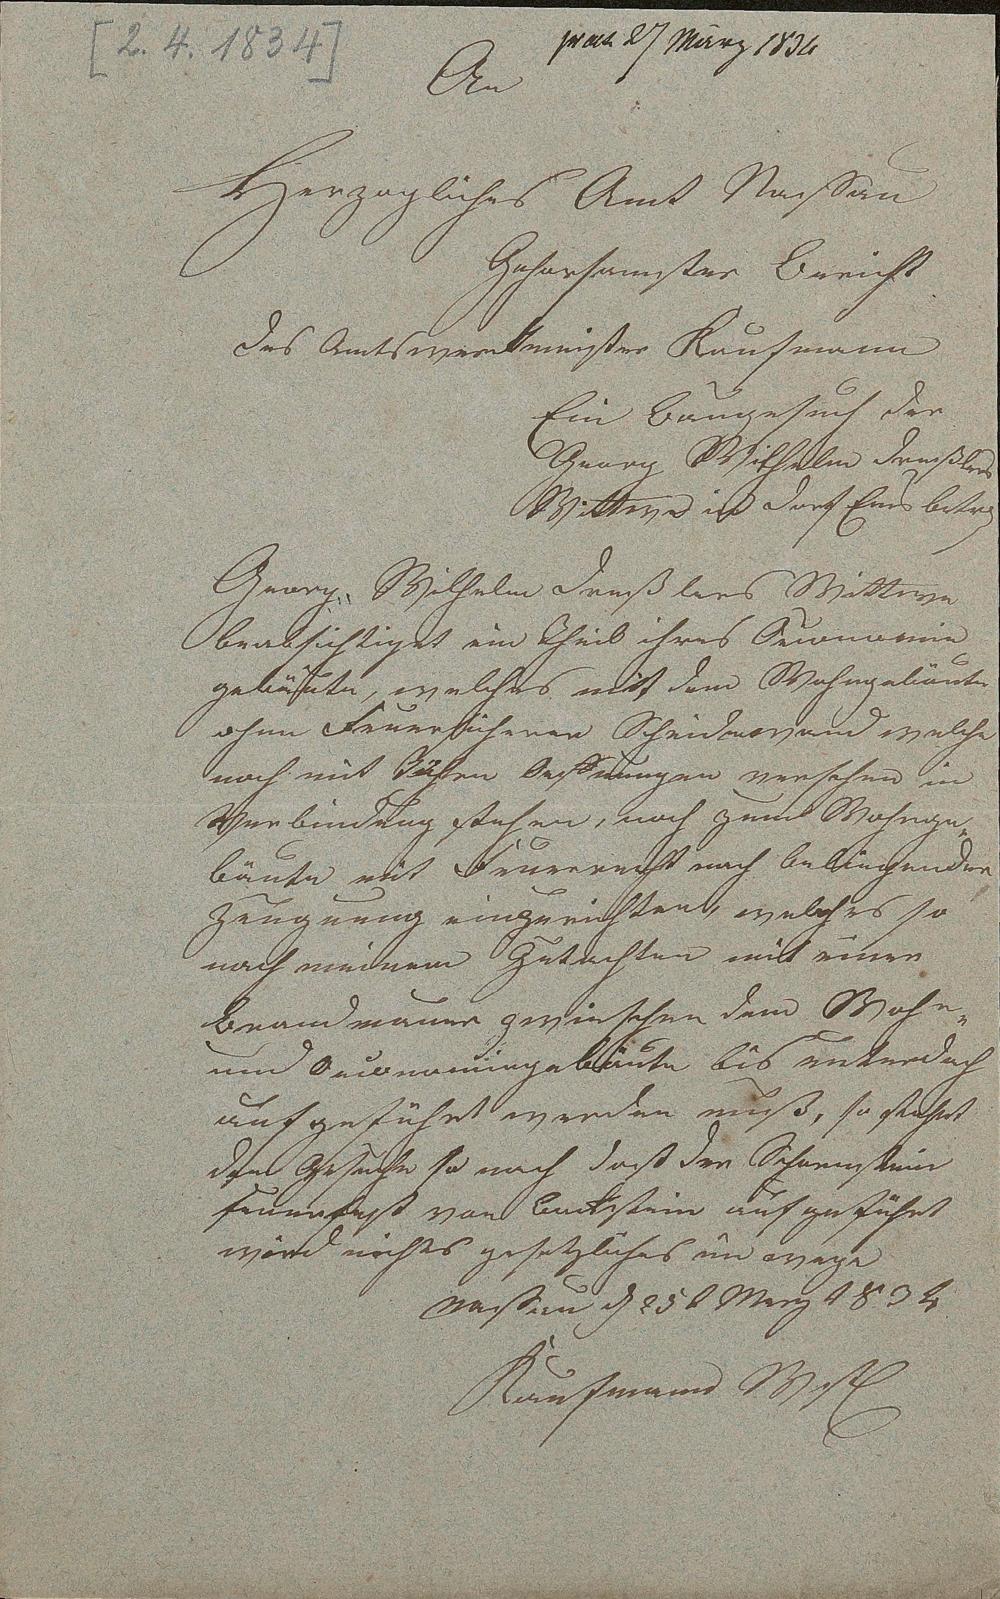 [2. 4. 1834]
praes 27 März 1834
An
Herzogliches Amt Nassau
Gehorsamster Bericht
des Amtswerkmeister Kaufmann
Ein Baugesuch der
Georg Wilhelm
Wittwe in Dorf Ems betrg
Georg Wilhelm Wittwe
beabsichtiget ein Theil ihres Oeconomie
gebäute, welches mit dem Wohngebäute
ohne Feuersicheren Scheidewand welche
noch mit Oeffnungen versehen in
Verbindung stehen, noch zum Wohnge„
bäute mit Feuerrecht nach beliegender
Zeugnung einzurichten, welches so
nach meinem Gutachten mit einer
Brandmauer zwieschen dem Wohn„
und Oeconomiegebäute bis unterdach
aufgeführt werden muß, so stehet
dem Gesuche so nach daß der Schornstein
feuerfest von Backstein aufgeführt
wird nichts gesetzliches im wege
Nassau d 25t Merz 1834
Kaufmann